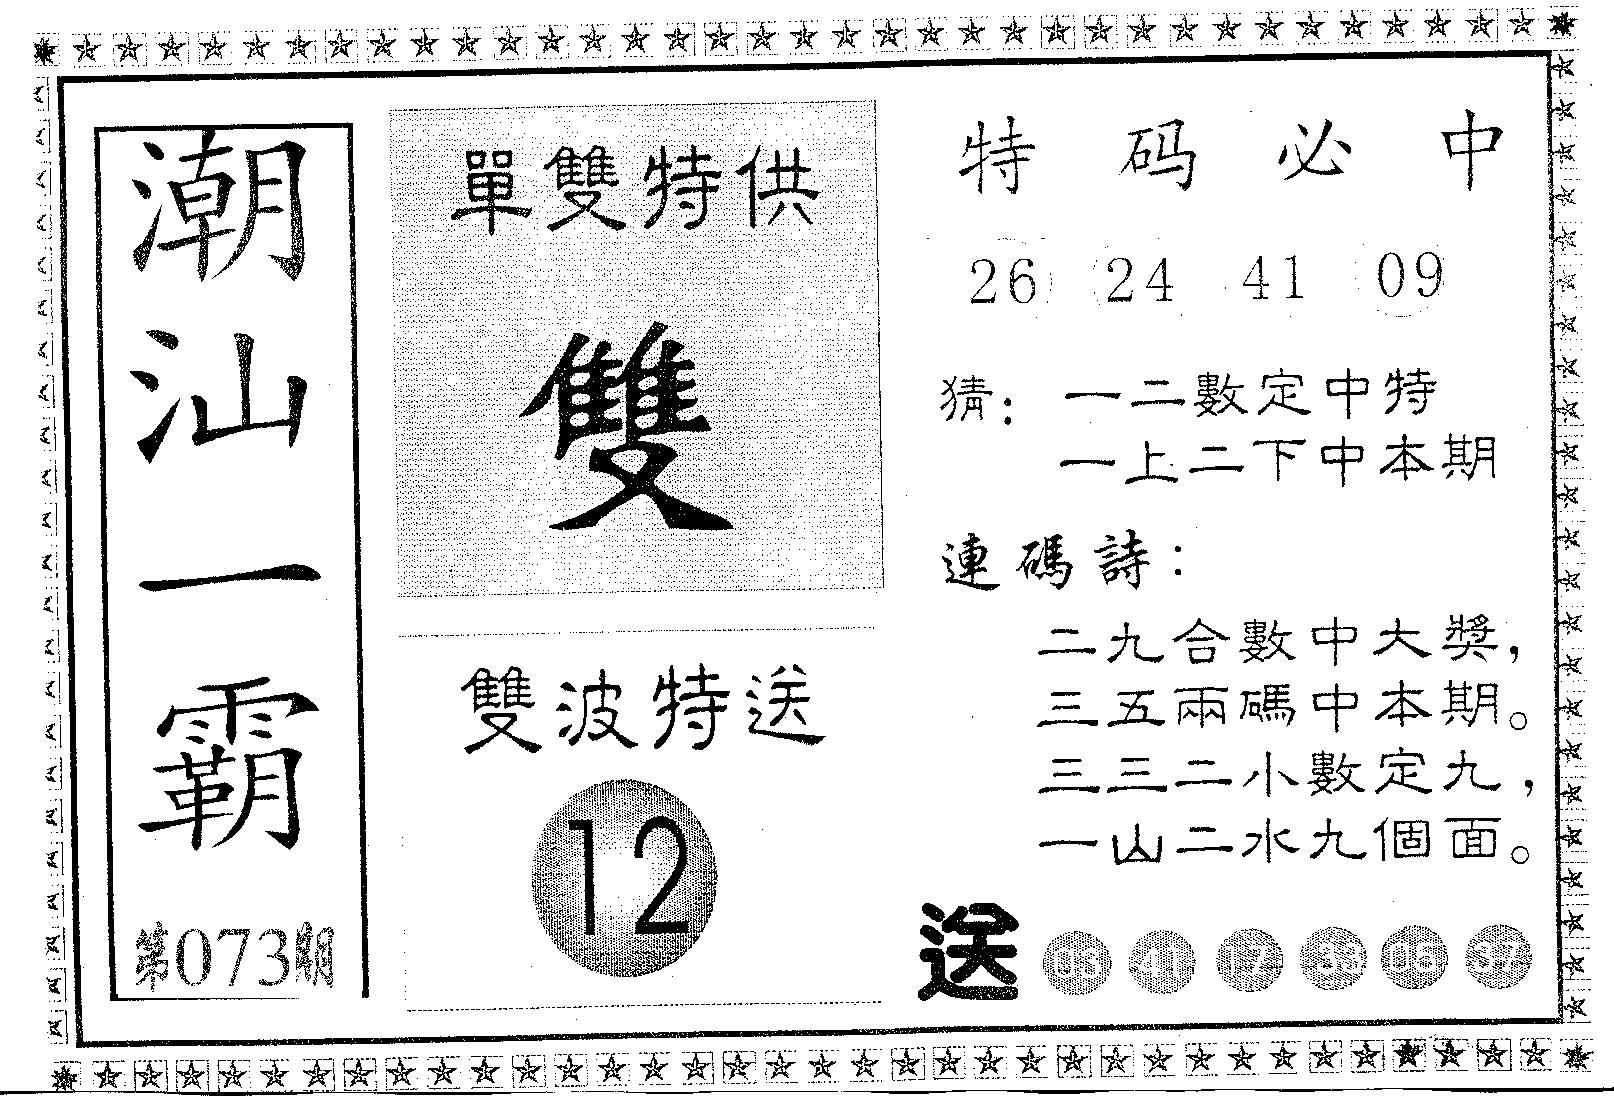 潮汕一霸
第073期
單雙特供
雙
雙波特送
12
特码必中
26 24 41 09
猜：一二數定中特
一上二下中本期
連碼詩：
二九合數中大獎，
三五兩碼中本期。
三三二小數定九，
一山二水九個面。
送 03 41 17 33 06 37